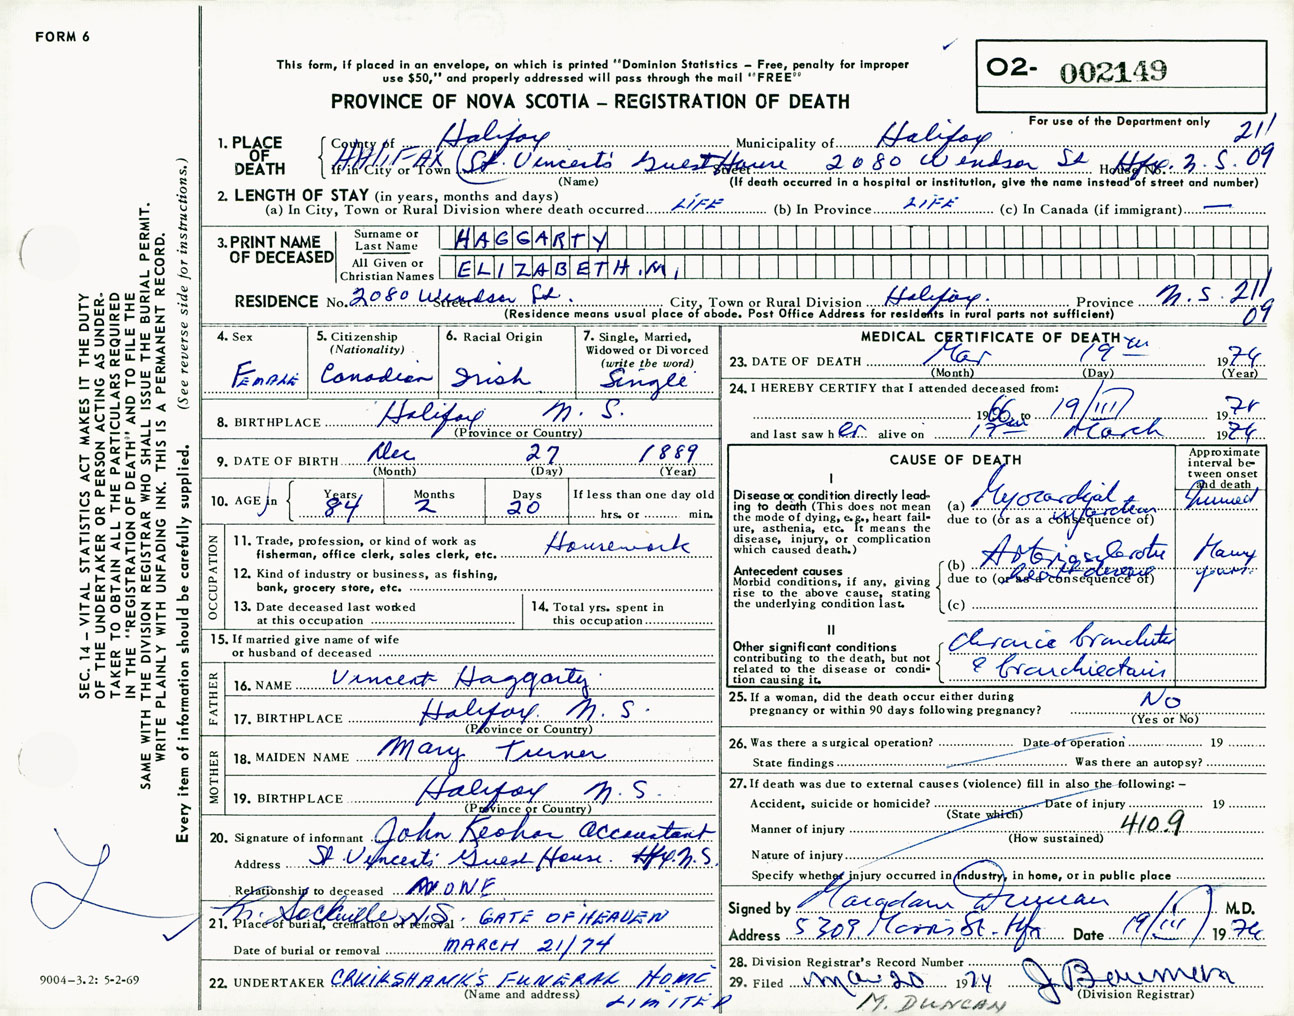 FORM 6
This form, if placed in an envelope, on which is printed "Dominion Statistics – Free, penalty for improper
use $50," and properly addressed will pass through the mail "FREE"
PROVINCE OF NOVA SCOTIA – REGISTRATION OF DEATH
O2- 002149
For use of the Department only
211
09
1. PLACE OF DEATH
County of Halifax Municipality of Halifax
If in City or Town HALIFAX (St. Vincent's Guest House Street 2080 Windsor St House No. Hfx. N.S.
(Name) (If death occurred in a hospital or institution, give the name instead of street and number)
2. LENGTH OF STAY (in years, months and days)
(a) In City, Town or Rural Division where death occurred LIFE (b) In Province LIFE (c) In Canada (if immigrant) —
3. PRINT NAME OF DECEASED
Surname or Last Name HAGGARTY
All Given or Christian Names ELIZABETH. M.
RESIDENCE No. 2080 Windsor St. Street City, Town or Rural Division Halifax. Province N.S. 211
09
(Residence means usual place of abode. Post Office Address for residents in rural parts not sufficient)
4. Sex
Female
5. Citizenship
(Nationality)
Canadian
6. Racial Origin
Irish
7. Single, Married,
Widowed or Divorced
(write the word)
Single
8. BIRTHPLACE Halifax N.S.
(Province or Country)
9. DATE OF BIRTH Dec 27 1889
(Month) (Day) (Year)
10. AGE in Years 84 Months 2 Days 20
If less than one day old
hrs. or min.
OCCUPATION
11. Trade, profession, or kind of work as
fisherman, office clerk, sales clerk, etc. Housework
12. Kind of industry or business, as fishing,
bank, grocery store, etc.
13. Date deceased last worked
at this occupation
14. Total yrs. spent in
this occupation
15. If married give name of wife
or husband of deceased
FATHER
16. NAME Vincent Haggarty
17. BIRTHPLACE Halifax. N.S.
(Province or Country)
MOTHER
18. MAIDEN NAME Mary Turner
19. BIRTHPLACE Halifax N.S.
(Province or Country)
20. Signature of informant John Accountant
Address St Vincent's Guest House. Hfx. N.S.
Relationship to deceased NONE
21. Place of burial, cremation or removal Sackville N.S. GATE OF HEAVEN
Date of burial or removal MARCH 21/74
22. UNDERTAKER CRUIKSHANK'S FUNERAL HOME
(Name and address) LIMITED
MEDICAL CERTIFICATE OF DEATH
23. DATE OF DEATH Mar 19th 1974
(Month) (Day) (Year)
24. I HEREBY CERTIFY that I attended deceased from:
1966 to 19/III 1974
and last saw her alive on March 1974
CAUSE OF DEATH
Approximate
interval be-
tween onset
and death
I
Disease or condition directly lead-
ing to death (This does not mean
the mode of dying, e.g., heart fail-
ure, asthenia, etc. It means the
disease, injury, or complication
which caused death.)
(a) Myocardial infarction
due to (or as a consequence of)
Antecedent causes
Morbid conditions, if any, giving
rise to the above cause, stating
the underlying condition last.
(b) Arteriosclerotic heart disease Many years.
due to (or as a consequence of)
(c)
II
Other significant conditions
contributing to the death, but not
related to the disease or condi-
tion causing it.
chronic bronchitis
& bronchiectasis
25. If a woman, did the death occur either during
pregnancy or within 90 days following pregnancy? No
(Yes or No)
26. Was there a surgical operation? Date of operation 19
State findings Was there an autopsy?
27. If death was due to external causes (violence) fill in also the following: –
Accident, suicide or homicide? Date of injury 19
(State which)
Manner of injury 410.9
(How sustained)
Nature of injury
Specify whether injury occurred in industry, in home, or in public place
Signed by Duncan M.D.
Address 5309 Morris St. Hfx Date 19/III 1974
28. Division Registrar's Record Number
29. Filed Mar 20 1974
(Division Registrar)
M. DUNCAN
SEC. 14 – VITAL STATISTICS ACT MAKES IT THE DUTY
OF THE UNDERTAKER OR PERSON ACTING AS UNDER-
TAKER TO OBTAIN ALL THE PARTICULARS REQUIRED
IN THE "REGISTRATION OF DEATH" AND TO FILE THE
SAME WITH THE DIVISION REGISTRAR WHO SHALL ISSUE THE BURIAL PERMIT.
WRITE PLAINLY WITH UNFADING INK. THIS IS A PERMANENT RECORD.
Every item of information should be carefully supplied. (See reverse side for instructions.)
9004-3.2: 5-2-69